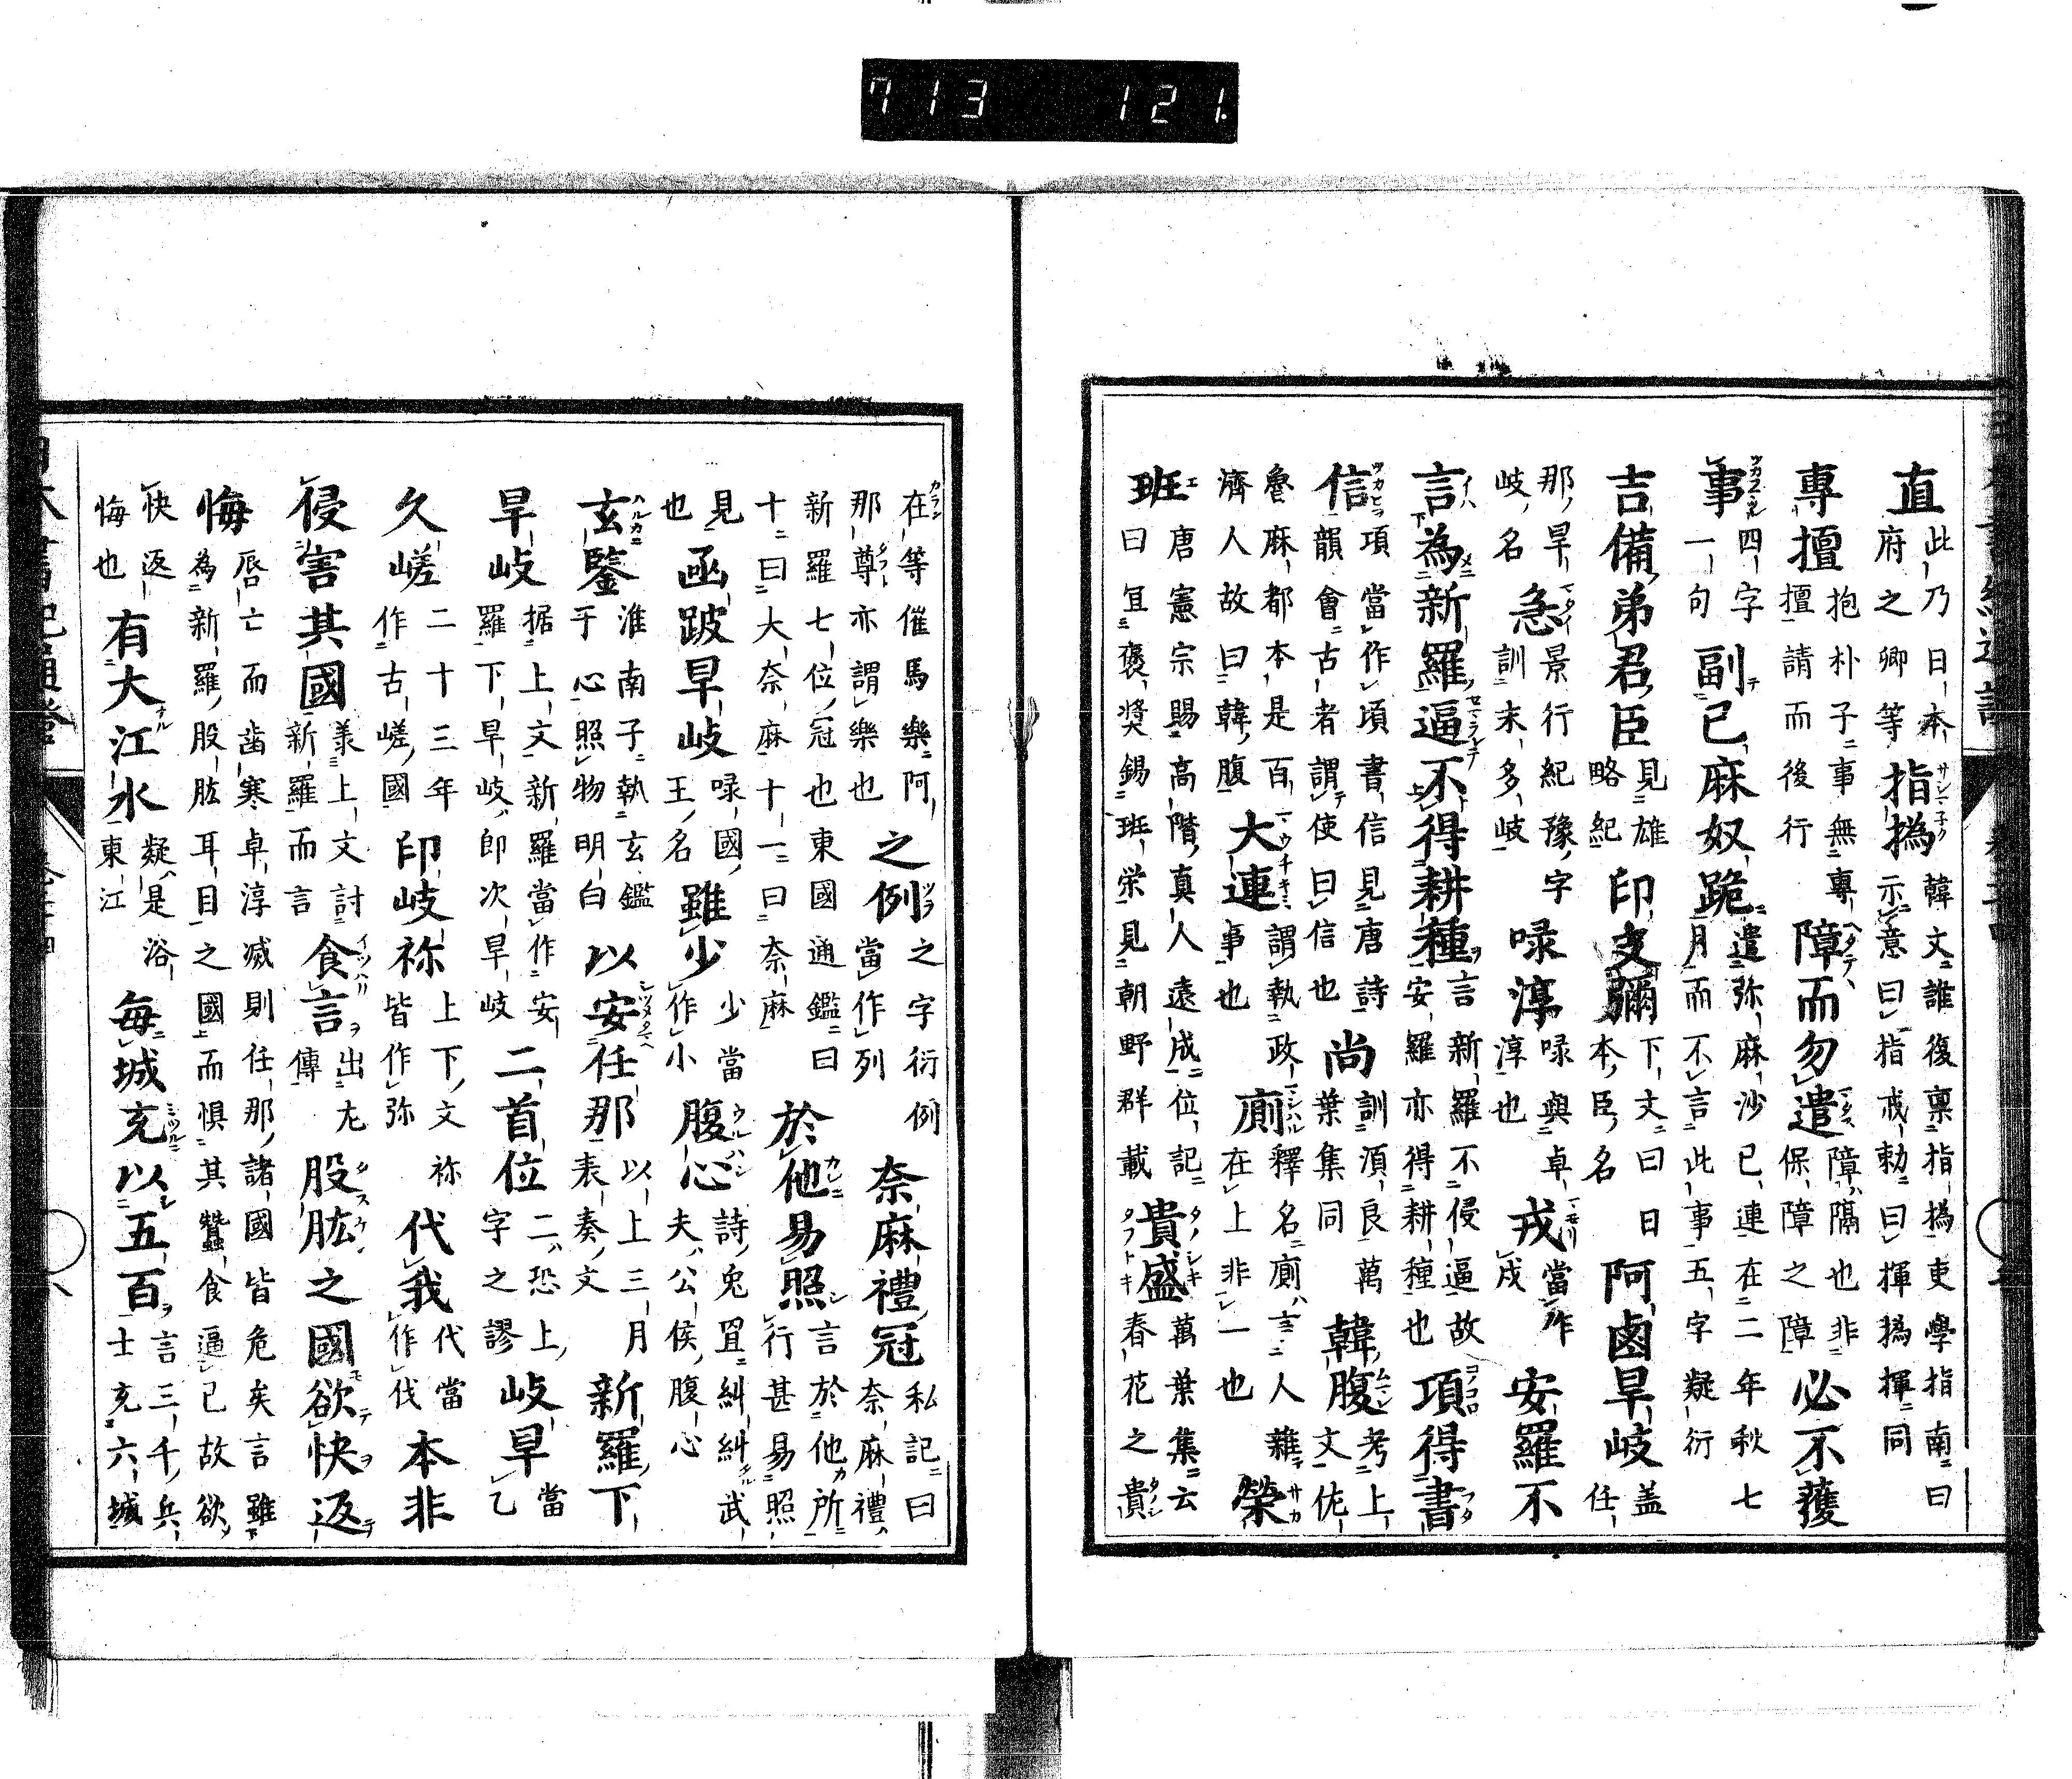 713 121.
直 此乃日本府之卿等 指撝 韓文誰復稟指撝吏學指南曰示意曰指戒勅曰揮撝揮同
專擅 抱朴子事無專擅請而後行 障而勿遣 障隔也非保障之障 必不獲
事 四字一句 副已麻奴跪 遣弥麻沙已連在二年秋七月而不言此事五字疑衍
吉備弟君臣 見雄略紀 印支彌 下文曰日本臣名 阿鹵旱岐 盖任
那旱岐名 急 景行紀豫字訓末多岐 㖨淳 㖨與卓淳也 戎 當作戍 安羅不
言為新羅逼不得耕種 言新羅不侵逼故安羅亦得耕種也 項得書
信 項當作頃書信見唐詩韻會古者謂使曰信也 尚 訓須良萬葉集同 韓腹 考上文佐
魯麻都本是百濟人故曰韓腹 大連 謂執政事也 廁 釋名廁言人雜在上非一也 榮
班 唐憲宗賜高階真人遠成位記曰宜褒奨錫班栄見朝野群載 貴盛 萬葉集云春花之貴
在等催馬樂阿那尊亦謂樂也 之例 之字衍例當作列 奈麻禮冠 私記曰奈麻禮
新羅七位冠也東國通鑑曰十曰大奈麻十一曰奈麻 於他易照 言於他所行甚易照
見也 函跛旱岐 㖨國王名 雖少 少當作小 腹心 詩兔罝糾糾武夫公侯腹心
玄鑒 淮南子執玄鑑于心照物明白 以安任那 以上三月表奏文 新羅下
旱岐 据上文新羅當作安羅下旱岐即次旱岐 二首位 二恐上字之謬 岐旱 當乙
久嵯 二十三年作古嵯國 印岐祢 上下文祢皆作弥 代我 代當作伐 本非
侵害其國 義上文討新羅而言 食言 出左傳 股肱之國欲快返
悔 唇亡而齒寒卓淳滅則任那諸國皆危矣言雖為新羅股肱耳目之國而惧其蠶食逼已故欲
快返悔也 有大江水 疑是浴東江 每城充以五百 言三千兵士充六城